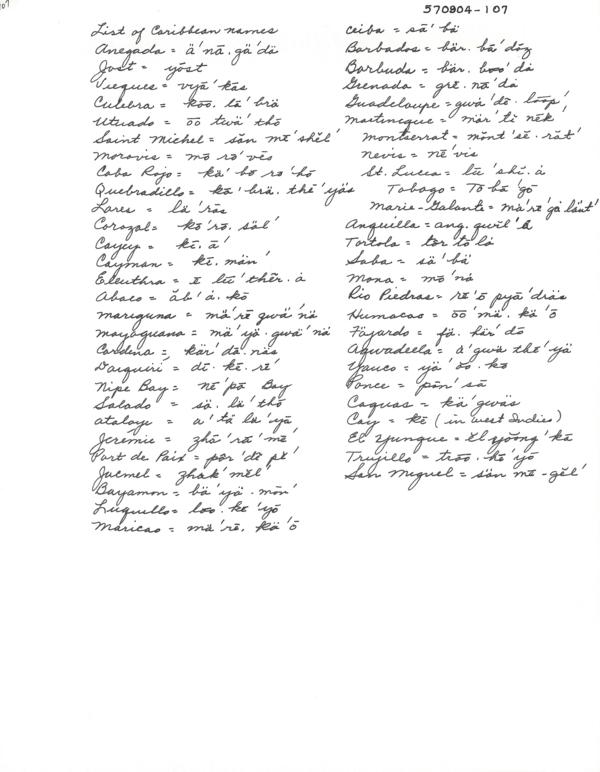 107
570804-107
List of Caribbean names
Anegada = ä′ nā. gä′ dä
Jost = yōst
Vieques = vyā′ kās
Culebra = kōō. lā′ brä
Utuado = ōō twä′ thō
Saint Michel = săn mē′ shĕl′
Morovis = mō rō′ vēs
Cabo Rojo = kä′ bō rō′ hō
Quebradillo = kā′ brä. thē′ yäs
Lares = lä′ rās
Corozal = kō′ rō. säl′
Cayey = kī. ā′
Cayman = kī. män′
Eleuthra = ē lū′ thēr. á
Abaco = ăb′ á. kō
Mariguna = mä′ rē gwä′ nä
Mayaguana = mä′ yä. gwä′ nä
Cardena = kär′ dā. näs
Daiquiri = dī. kē. rē′
Nipe Bay = nē′ pā Bay
Salado = sä. lä′ thō
Atalaye = a′ tä lä′ yā
Jeremie = zhā′ rā′ mē′
Port de Paix = pôr′ dĕ pĕ′
Jacmel = zhak′ mĕl′
Bayamon = bä′ yä. mōn′
Luquillo = loo. kē′ yō
Maricao = mä′ rē. kä′ ō
Ceiba = sā′ bä
Barbados = bär. bā′ dōz
Barbuda = bär. boo′ dá
Grenada = grĕ. nā′ dá
Guadeloupe = gwä′ dĕ. lōōp′
Martinique = mär′ tĭ nēk′
Montserrat = mŏnt′ sĕ. răt′
Nevis = nē′ vis
St. Lucia = lū′ shĭ. á
Tobago = Tō bā′ gō
Marie-Galante = má′ rē′ gá länt′
Anguilla = ang. gwĭl′ á
Tortola = tor tō′ lá
Saba = sä′ bä
Mona = mō′ nä
Rio Piedras = rē′ ō pyā′ dräs
Humacao = ōō′ mä. kä′ ō
Fajardo = fä. här′ dō
Aguadeela = ä′ gwä thē′ yä
Yauco = yä′ ōō. kō
Ponce = pōn′ sā
Caguas = kä′ gwäs
Cay = kē (in West Indies)
El Yunque = ĕl yōōng′ kā
Trujillo = troo. hē′ yō
San Miguel = sän mē-gĕl′